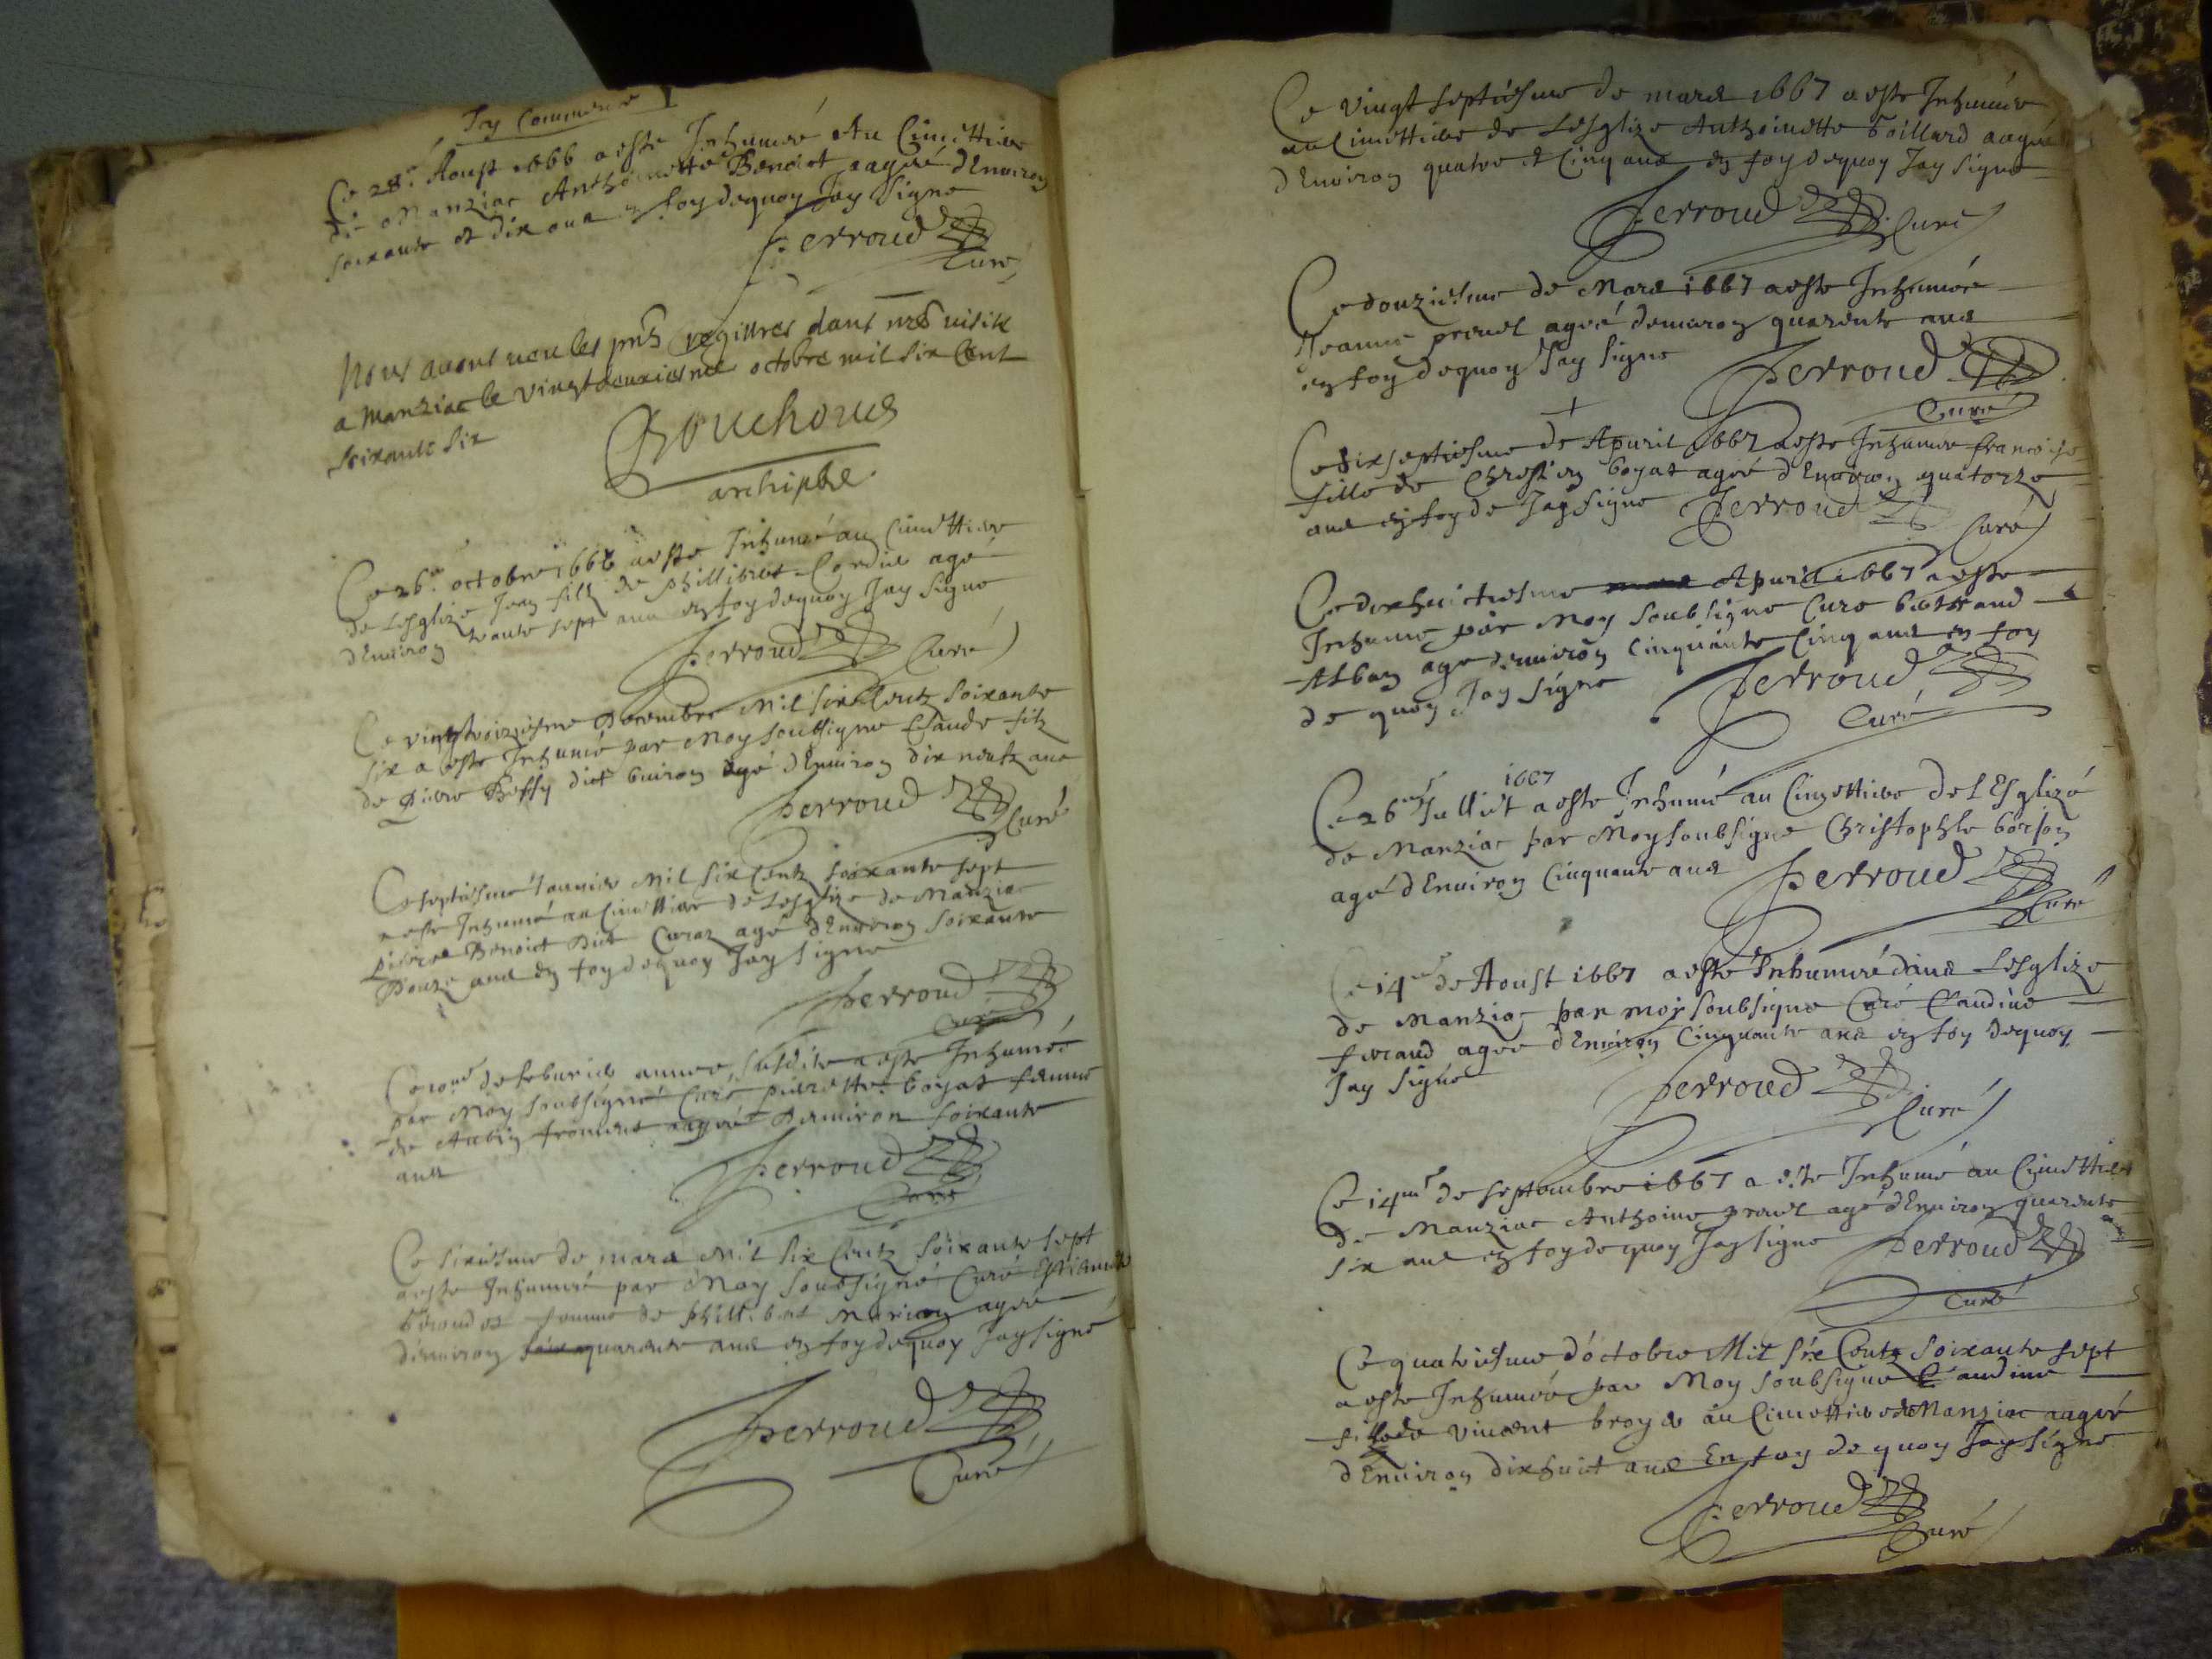 Icy Commence
Ce 28e Aoust 1666 a esté Inhumeé Au Cimettiere
de Manziac Anthoinette Benoict aageé d'Enuiron
soixante et dix ans en foy dequoy Jay Signe
Perroud
Curé
Nous auons ueu les pnts regittres dans nre uisite
a Manziac le vingtdeuxiesme octobre mil six Cent
soixante six
Bouchoux
archiptre
Ce 26e octobre 1666 a este Inhumé au Cimettiere
de Lesglize Jean fill de Phillibert Cordie agé
d'Enuiron trante sept ans en foy dequoy Jay Signe
Perroud Curé
Ce vingtroiziesme Decembre Mil six Centz soixante
six a este Inhumé par Moy soubsigne Claude filz
de Pierre Bessy dict Guiron agé d'Enuiron dix neufz ans
Perroud Curé
Ce septiesme Januier Mil six Centz soixante sept
a este Inhumé au Cimettiere de Lesglize de Manziac
Pierre Benoict Dict Curaz agé d'Enuiron soixante
Douze ans En foy dequoy Jay signe
Perroud
Curé
Ce 10me de feburier annee susdite a este Inhumée
par Moy soubsigné Curé pierrette boyat femme
de Aubin froment aageé Denuiron soixante
ans
Perroud
Curé
Ce sixiesme de mars Mil six Centz soixante sept
a este Inhumeé par Moy soubsigné Curé Estiennette
femme de Phillibert Marion ageé
denuiron quarente ans en foy dequoy Jay signé
Perroud
Curé
Ce vingt septiesme de mars 1667 a este Inhumeé
au Cimettiere de Lesglize Anthoinette Goillard aageé
d'Enuiron quatre et Cinq ans en foy dequoy Jay signe
Perroud Curé
Ce douziesme de Mars 1667 a este Inhumée
Jeanne preuel ageé denuiron quarente ans
en foy dequoy Jay signe
Perroud
Curé
Ce dixseptiesme de Apuril 1667 a este Inhumee francoise
fille de Chrestien boyat ageé d'Enuiron quatorze
ans en foy de Jay signe Perroud
Curé
Ce dixhuictiesme Apuril 1667 a este
Inhume par Moy soubsigne Cure bertrand
Alban age denuiron Cinquante Cinq ans en foy
de quoy Jay signe Perroud
Curé
1667
Ce 26me Julliet a este Inhumé au Cimettiere de L'Esglizé
de Manziac par Moy soubsigne Christophle borjon
agé d'Enuiron Cinquante ans Perroud
Curé
Ce 14me de Aoust 1667 a este Inhumeé dans Lesglize
de Manziac par moy soubsigne Curé Claudine
feraud agee d'Enuiron Cinquante ans en foy dequoy
Jay signe
Perroud Curé
Ce 14me de septembre 1667 a este Inhumé au Cimettiere
de Manziac Anthoine preuel agé d'Enuiron quarente
six ans en foy de quoy Jay signe Perroud
Curé
Ce quatriesme d'octobre Mil six Centz soixante sept
a este Inhumée par Moy soubsigne Claudine
fille de Vincent broyer au Cimettiere de Manziac aageé
d'Enuiron dixhuict ans En foy de quoy Jay signe
Perroud
Curé